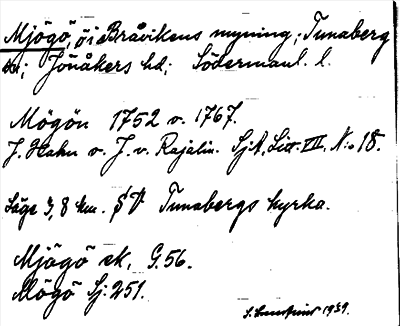 Mjögö, ö i Bråvikens mynning, Tunaberg
sn; Jönåkers hd; Södermanl. l.
Mögön 1752 o. 1767.
J. Hahn o. J. v. Rajalin. SjK, Litt. VII, N:o 18.
Läge 3,8 km. S V Tunabergs kyrka.
Mjögö ek, G.56.
Mögö Sj: 251.
1939.